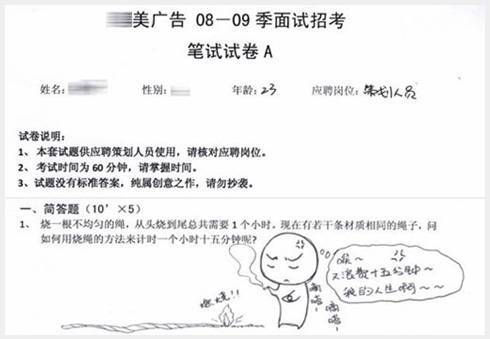 美广告 08－09 季面试招考
笔试试卷 A
姓名： 性别： 年龄：23 应聘岗位：策划人员
试卷说明：
1、 本套试题供应聘策划人员使用，请核对应聘岗位。
2、 考试时间为 60 分钟，请掌握时间。
3、 试题没有标准答案，纯属创意之作，请勿抄袭。
一、简答题（10’×5）
1、 烧一根不均匀的绳，从头烧到尾总共需要 1 个小时。现在有若干条材质相同的绳子，问
如何用烧绳的方法来计时一个小时十五分钟呢？
唉～
又浪费十五分钟～
我的人生啊～～
燃烧!!
嘀嗒。
嘀嗒。